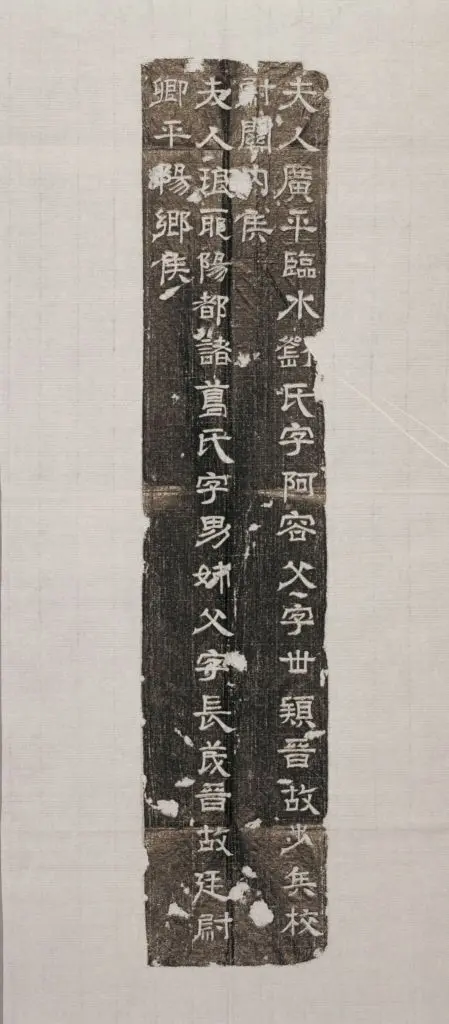 夫人廣平臨水劉氏字阿容父字世頴晉故步兵校
尉關內侯
夫人琅耶陽都諸葛氏字男姊父字長茂晉故廷尉
卿平陽鄉侯